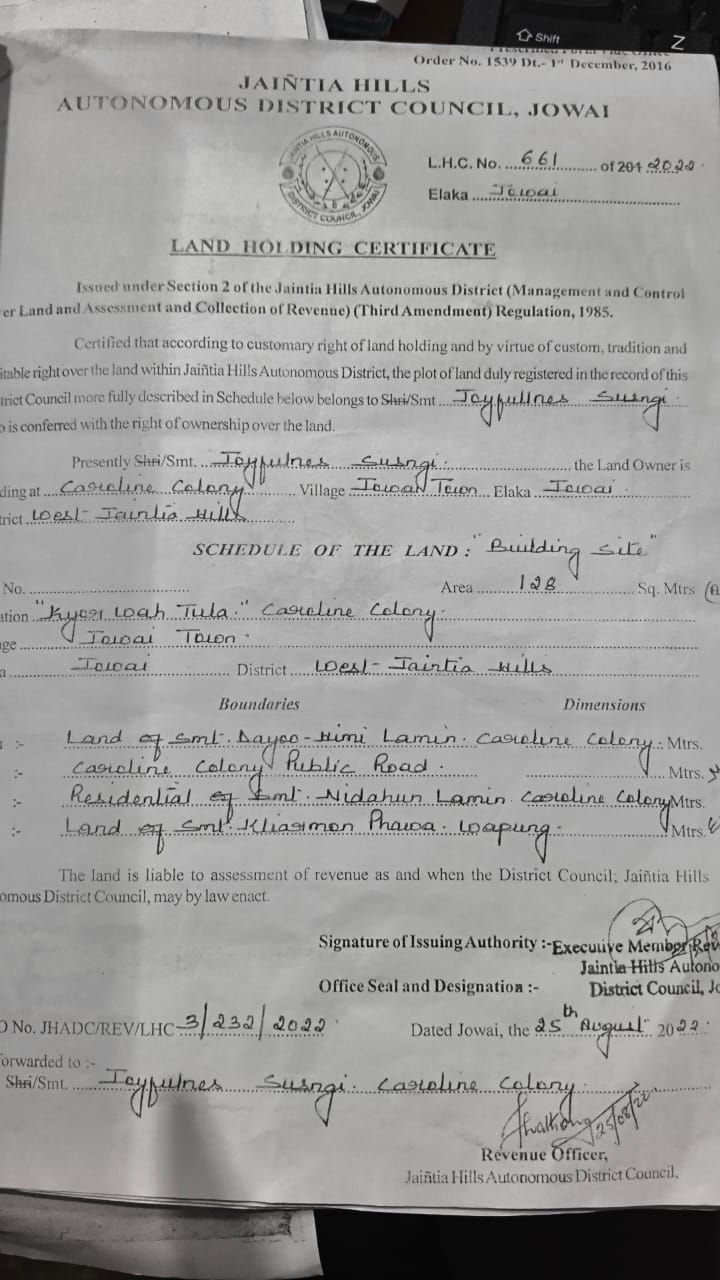 Shift
Z
Order No. 1539 Dt.- 1st December, 2016
JAIÑTIA HILLS
AUTONOMOUS DISTRICT COUNCIL, JOWAI
JAINTIA HILLS AUTONOMOUS
DISTRICT COUNCIL, JOWAI
L.H.C. No. 661 of 201 2022
Elaka Jowai
LAND HOLDING CERTIFICATE
Issued under Section 2 of the Jaintia Hills Autonomous District (Management and Control
er Land and Assessment and Collection of Revenue) (Third Amendment) Regulation, 1985.
Certified that according to customary right of land holding and by virtue of custom, tradition and
itable right over the land within Jaiñtia Hills Autonomous District, the plot of land duly registered in the record of this
trict Council more fully described in Schedule below belongs to Shri/Smt Joyfullnes Susngi.
o is conferred with the right of ownership over the land.
Presently Shri/Smt. Joyfulnes Susngi. the Land Owner is
ding at Caroline Colony Village Jowai Town Elaka Jowai.
trict West-Jaintia Hills
SCHEDULE OF THE LAND : "Building Site"
No. Area 128 Sq. Mtrs
ation "Kyor Wah Tula." Caroline Colony.
ge Jowai Town.
a Jowai District West-Jaintia Hills
Boundaries Dimensions
:- Land of Smt. Dayoo-Himi Lamin. Caroline Colony. Mtrs.
:- Caroline Colony Public Road. Mtrs.
:- Residential of Smt. Nidahun Lamin Caroline Colony Mtrs.
:- Land of Smt. Khiasmon Phawa. Wapung. Mtrs.
The land is liable to assessment of revenue as and when the District Council; Jaiñtia Hills
omous District Council, may by law enact.
Signature of Issuing Authority :- Executive Member, Rev
Jaintia Hills Autono
Office Seal and Designation :- District Council, Jo
O No. JHADC/REV/LHC 3/232/2022 Dated Jowai, the 25th August 2022
forwarded to :-
Shri/Smt. Joyfulnes Susngi. Caroline Colony.
25/08/22
Revenue Officer,
Jaiñtia Hills Autonomous District Council,